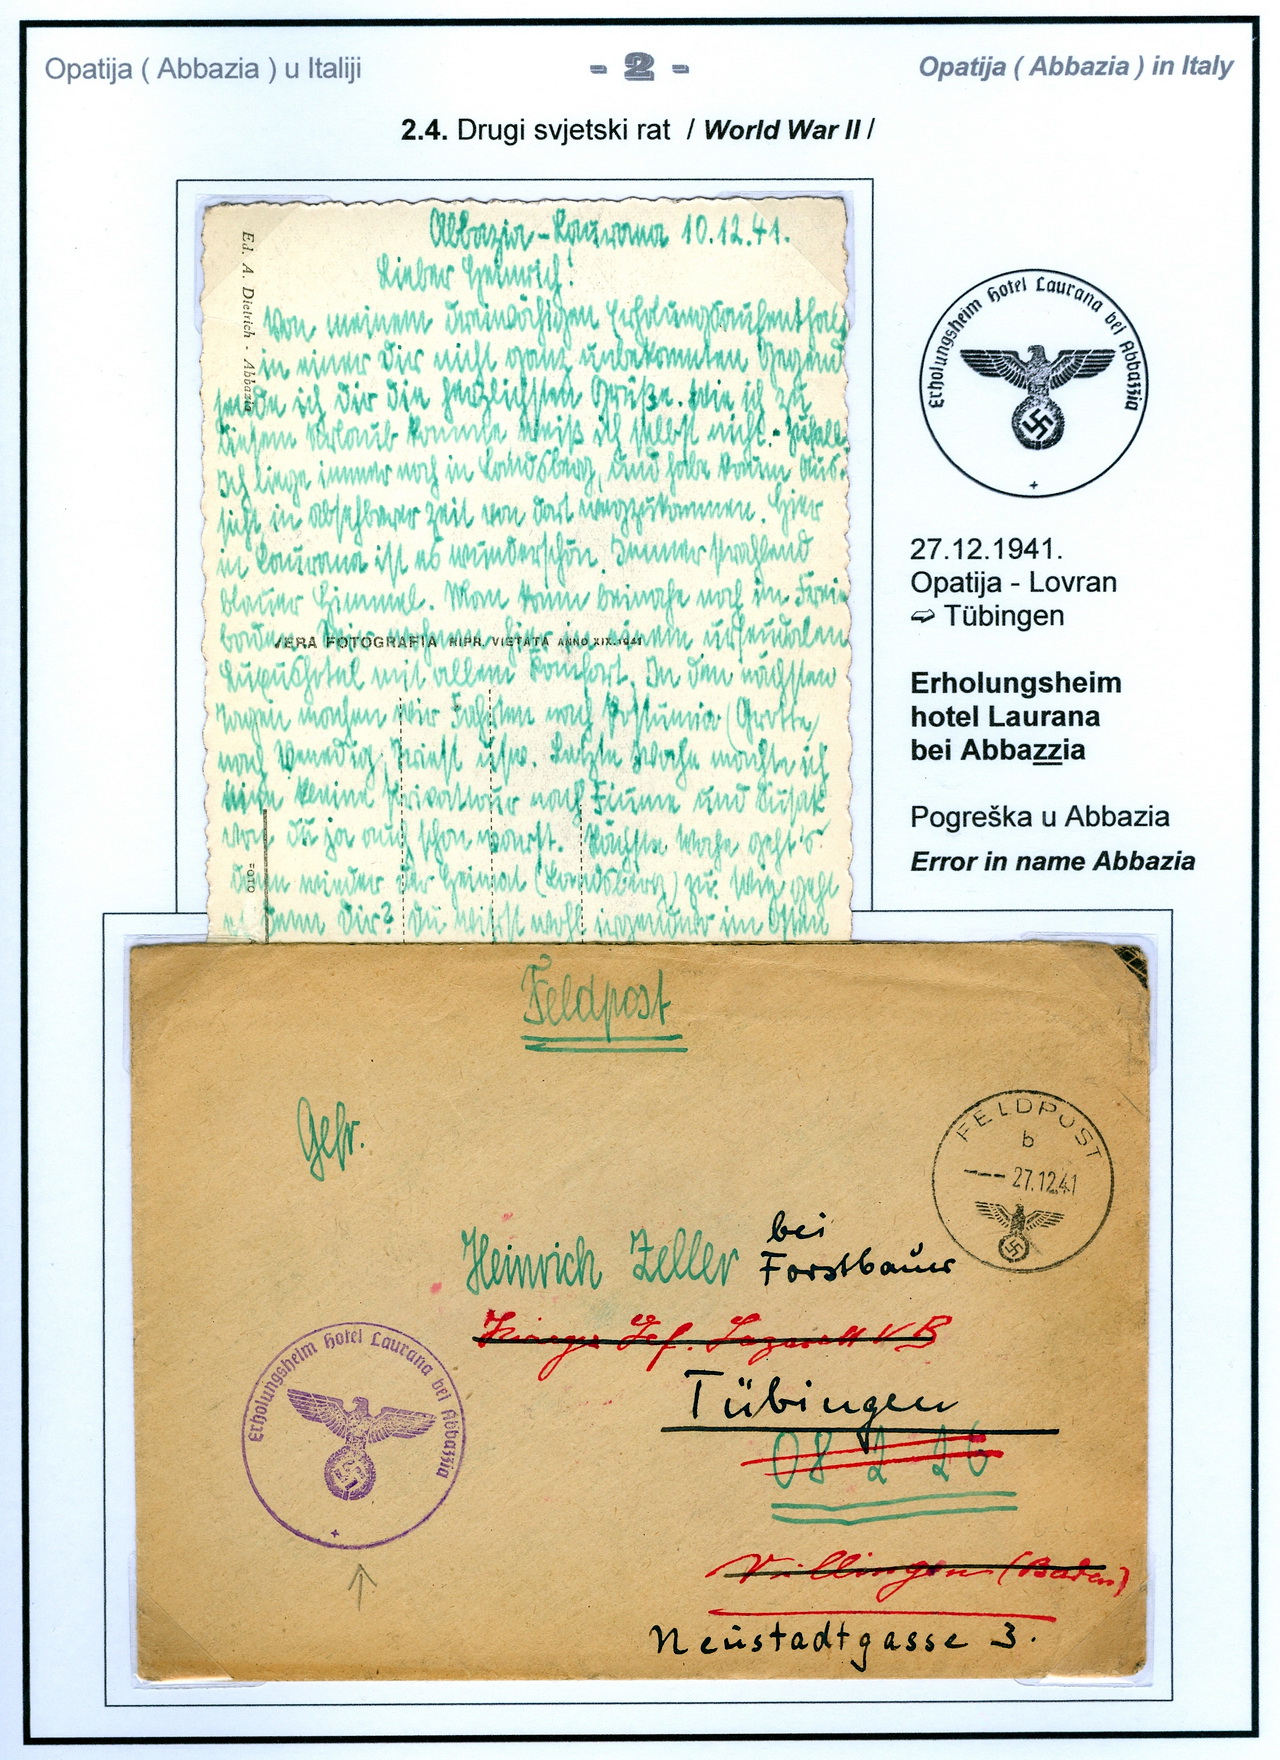 Opatija ( Abbazia ) u Italiji
- 2 -
Opatija ( Abbazia ) in Italy
2.4. Drugi svjetski rat / World War II /
Ed. A. Dietrich - Abbazia
Abbazia - Laurana 10.12.41.
Lieber Heinrich!
Von meinem dreiwöchigen Erholungsaufenthalt
in einer dir nicht ganz unbekannten Gegend
sende ich dir die herzlichsten Grüße. Wie ich zu
diesem Urlaub komme weiß ich selbst nicht. - Zufall.
Ich liege immer noch in Landsberg, und habe kaum Aus-
sicht in absehbarer Zeit von dort wegzukommen. Hier
in Laurana ist es wunderschön. Immer strahlend
blauer Himmel. Man kann beinahe noch im Freien
baden. Wir wohnen hier in einem urfeudalen
VERA FOTOGRAFIA RIPR. VIETATA ANNO XIX.1941
Luxushotel mit allem Komfort. In den nächsten
Tagen machen wir Fahrten nach Postumia (Grotte)
nach Venedig, Triest usw. Letzte Woche machte ich
eine kleine Privattour nach Fiume und Susak
wo du ja auch schon warst. Nächste Woche geht's
dann wieder der Heimat (Landsberg) zu. Wie geht
es denn dir? Du wirst wohl irgendwo im Osten
FOTO
Erholungsheim Hotel Laurana bei Abbazzia
27.12.1941.
Opatija - Lovran
➯ Tübingen
Erholungsheim
hotel Laurana
bei Abbazzia
Pogreška u Abbazia
Error in name Abbazia
Feldpost
Gefr.
FELDPOST
b
--- 27.12.41
Heinrich Zeller bei
Forstbauer
Kriegs Gef. Lazarett V B
Tübingen
08 2 26
Villingen (Baden)
Neustadtgasse 3.
Erholungsheim Hotel Laurana bei Abbazzia